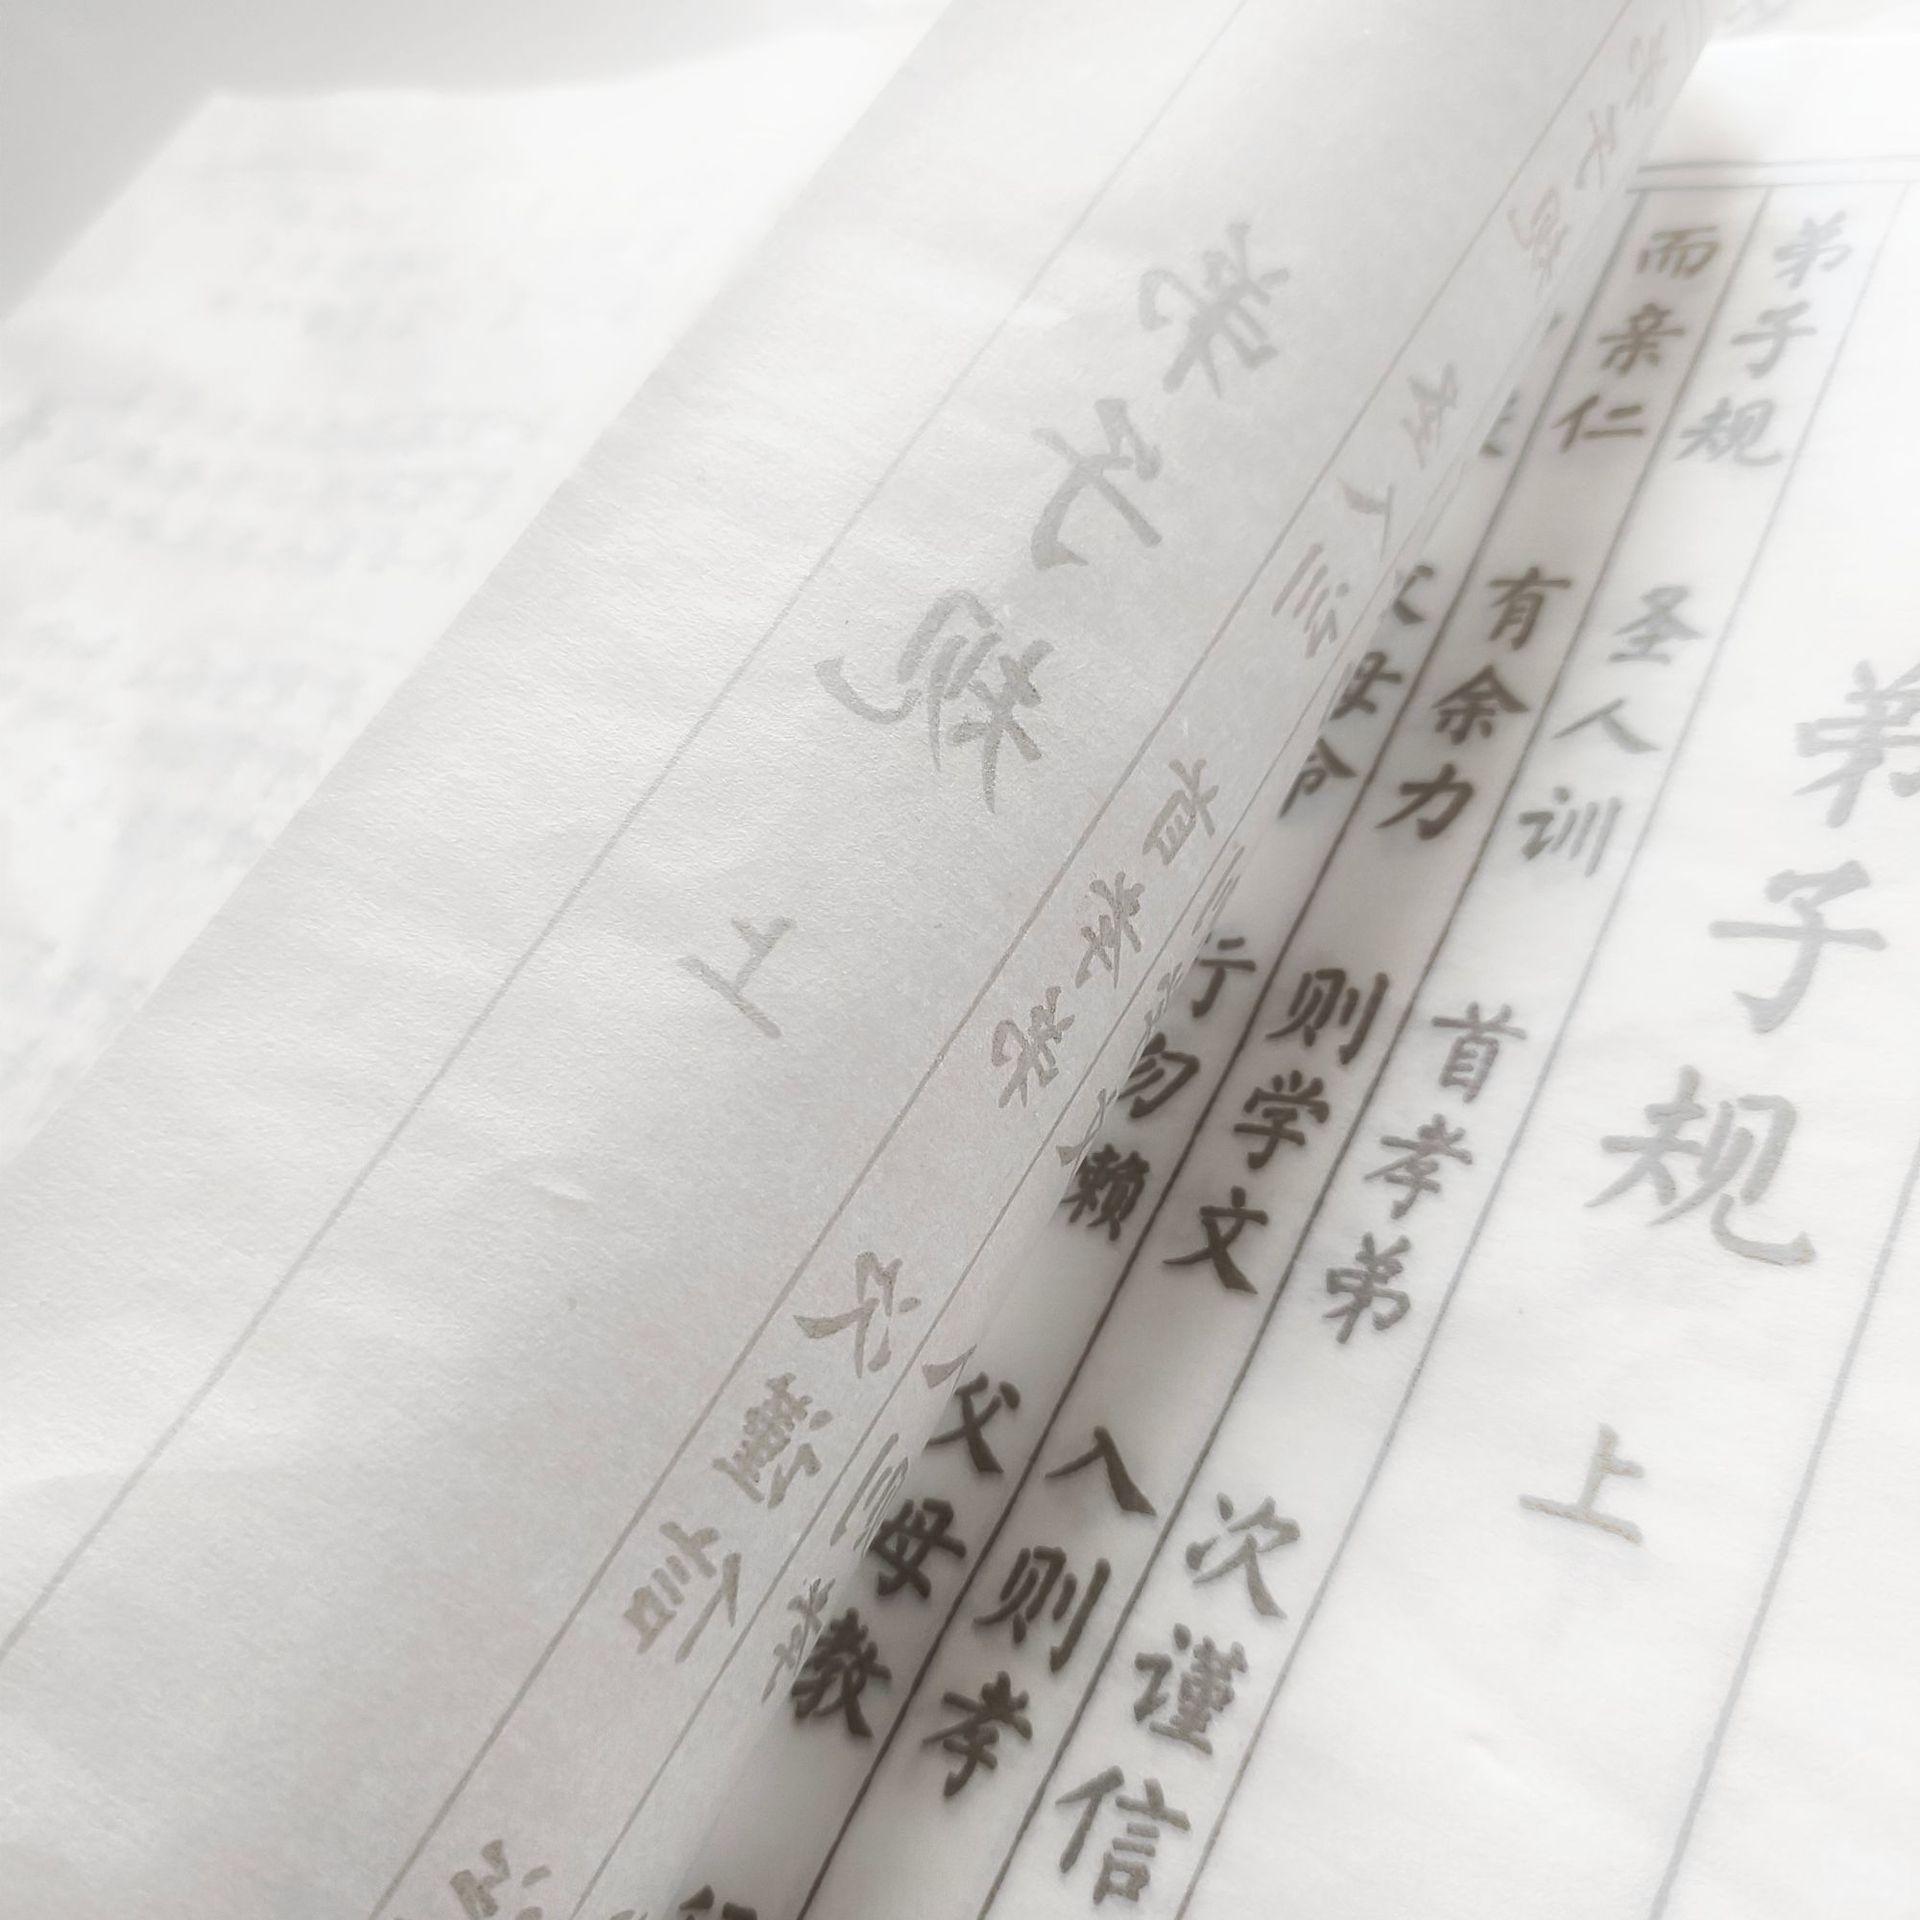 弟子规 上
弟子规 圣人训 首孝弟 次谨信
而亲仁 有余力 则学文 入则孝
父母命 行勿懒 父母教